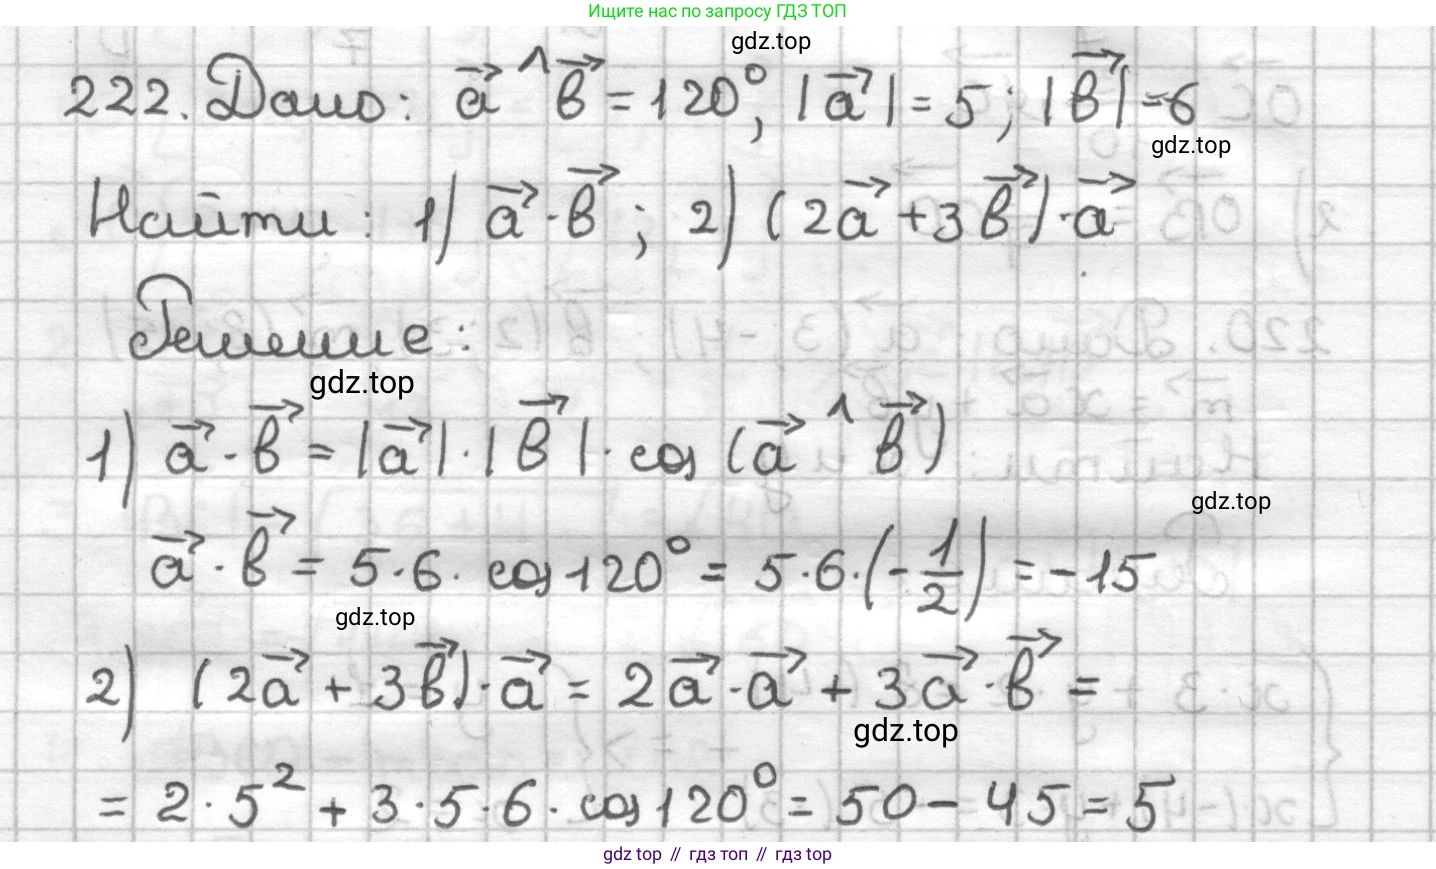 Ищите нас по запросу ГДЗ ТОП
gdz.top
222. Дано: a⃗ ^ b⃗ = 120°, |a⃗| = 5; |b⃗| = 6
gdz.top
Найти: 1) a⃗ · b⃗ ; 2) (2a⃗ + 3b⃗) · a⃗
Решение:
gdz.top
1) a⃗ · b⃗ = |a⃗| · |b⃗| · cos (a⃗ ^ b⃗)
gdz.top
a⃗ · b⃗ = 5 · 6 · cos 120° = 5 · 6 · (-1/2) = -15
gdz.top
2) (2a⃗ + 3b⃗) · a⃗ = 2a⃗ · a⃗ + 3a⃗ · b⃗ =
gdz.top
= 2 · 5² + 3 · 5 · 6 · cos 120° = 50 - 45 = 5
gdz top // гдз топ // gdz top